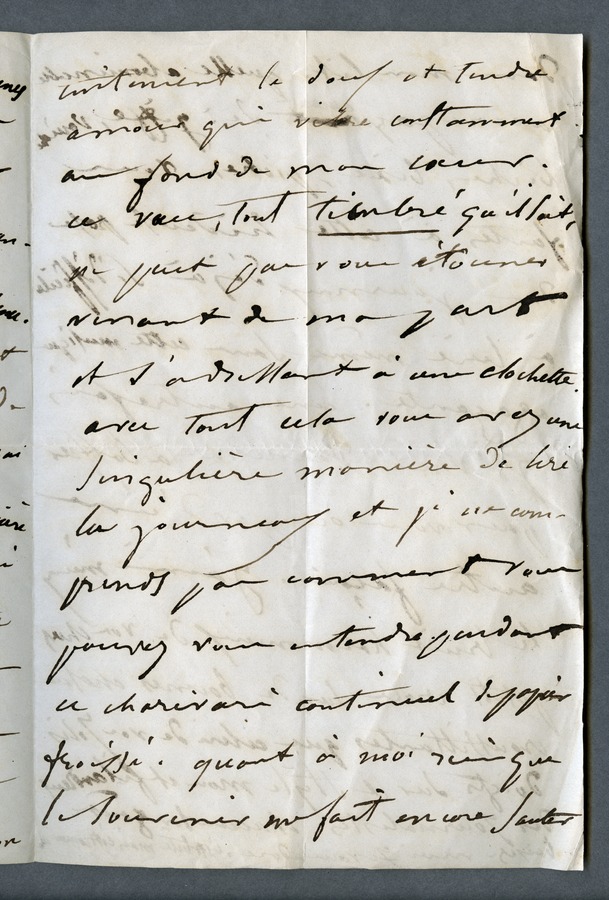 le doux et tendre
amour qui vibre constamment
au fond de mon cœur.
ce vœu, tout timbré qu'il soit,
ne peut pas vous étonner
venant de ma part
et s'adressant à une clochette.
avec tout cela vous avez une
singulière manière de lire
les journaux et je ne com-
prends pas comment vous
pouvez vous entendre pendant
ce charivari continuel de papier
froissé. quant à moi rien que
le souvenir me fait encore sauter